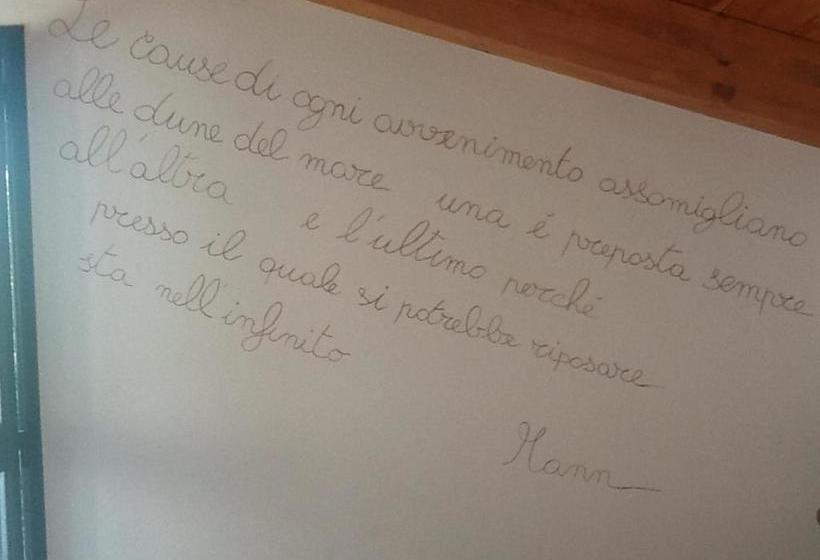 Le cause di ogni avvenimento assomigliano
alle dune del mare una é preposta sempre
all'altra e l'ultimo perché
presso il quale si potrebbe riposare
sta nell'infinito
Mann